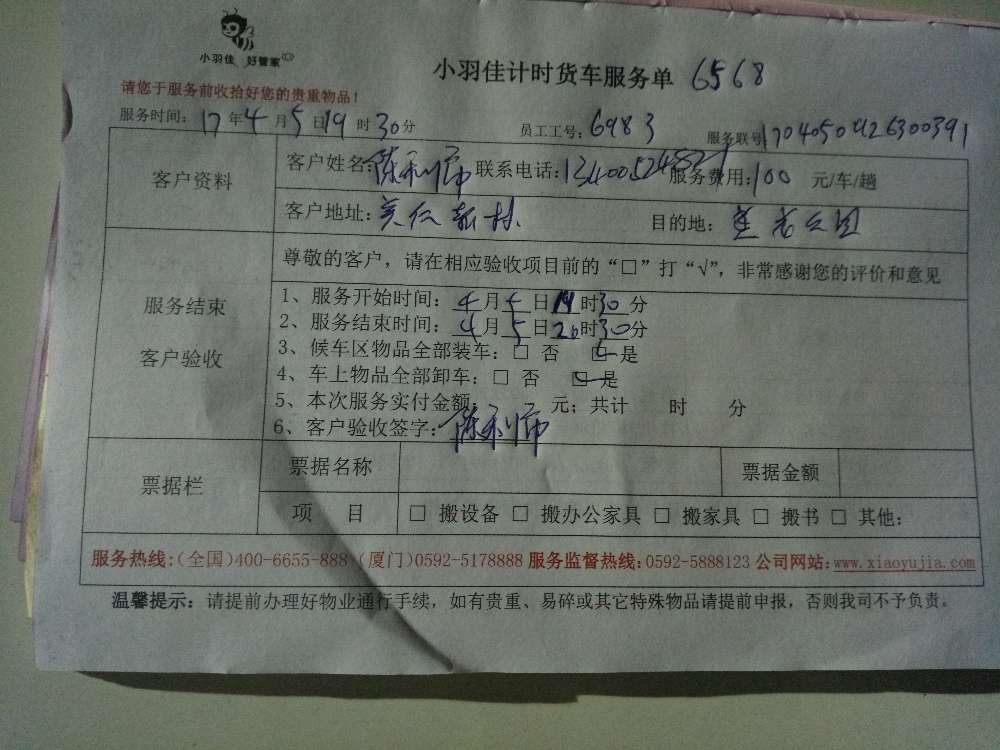 小羽佳 好管家
小羽佳计时货车服务单 6568
请您于服务前收拾好您的贵重物品！
服务时间：17年4月5日19时30分 员工工号：6983 服务联号：
客户资料
客户姓名：陈利师 联系电话： 服务费用：100 元/车/趟
客户地址：美仁新村 目的地：
服务结束
客户验收
尊敬的客户，请在相应验收项目前的“□”打“√”，非常感谢您的评价和意见
1、服务开始时间：4月5日19时30分
2、服务结束时间：4月5日20时30分
3、候车区物品全部装车：□ 否 □是
4、车上物品全部卸车：□ 否 □是
5、本次服务实付金额： 元；共计 时 分
6、客户验收签字：陈利师
票据栏
票据名称 票据金额
项 目 □ 搬设备 □ 搬办公家具 □ 搬家具 □ 搬书 □ 其他：
服务热线：(全国)400-6655-888 (厦门)0592-5178888 服务监督热线：0592-5888123 公司网站：www.xiaoyujia.com
温馨提示：请提前办理好物业通行手续，如有贵重、易碎或其它特殊物品请提前申报，否则我司不予负责。